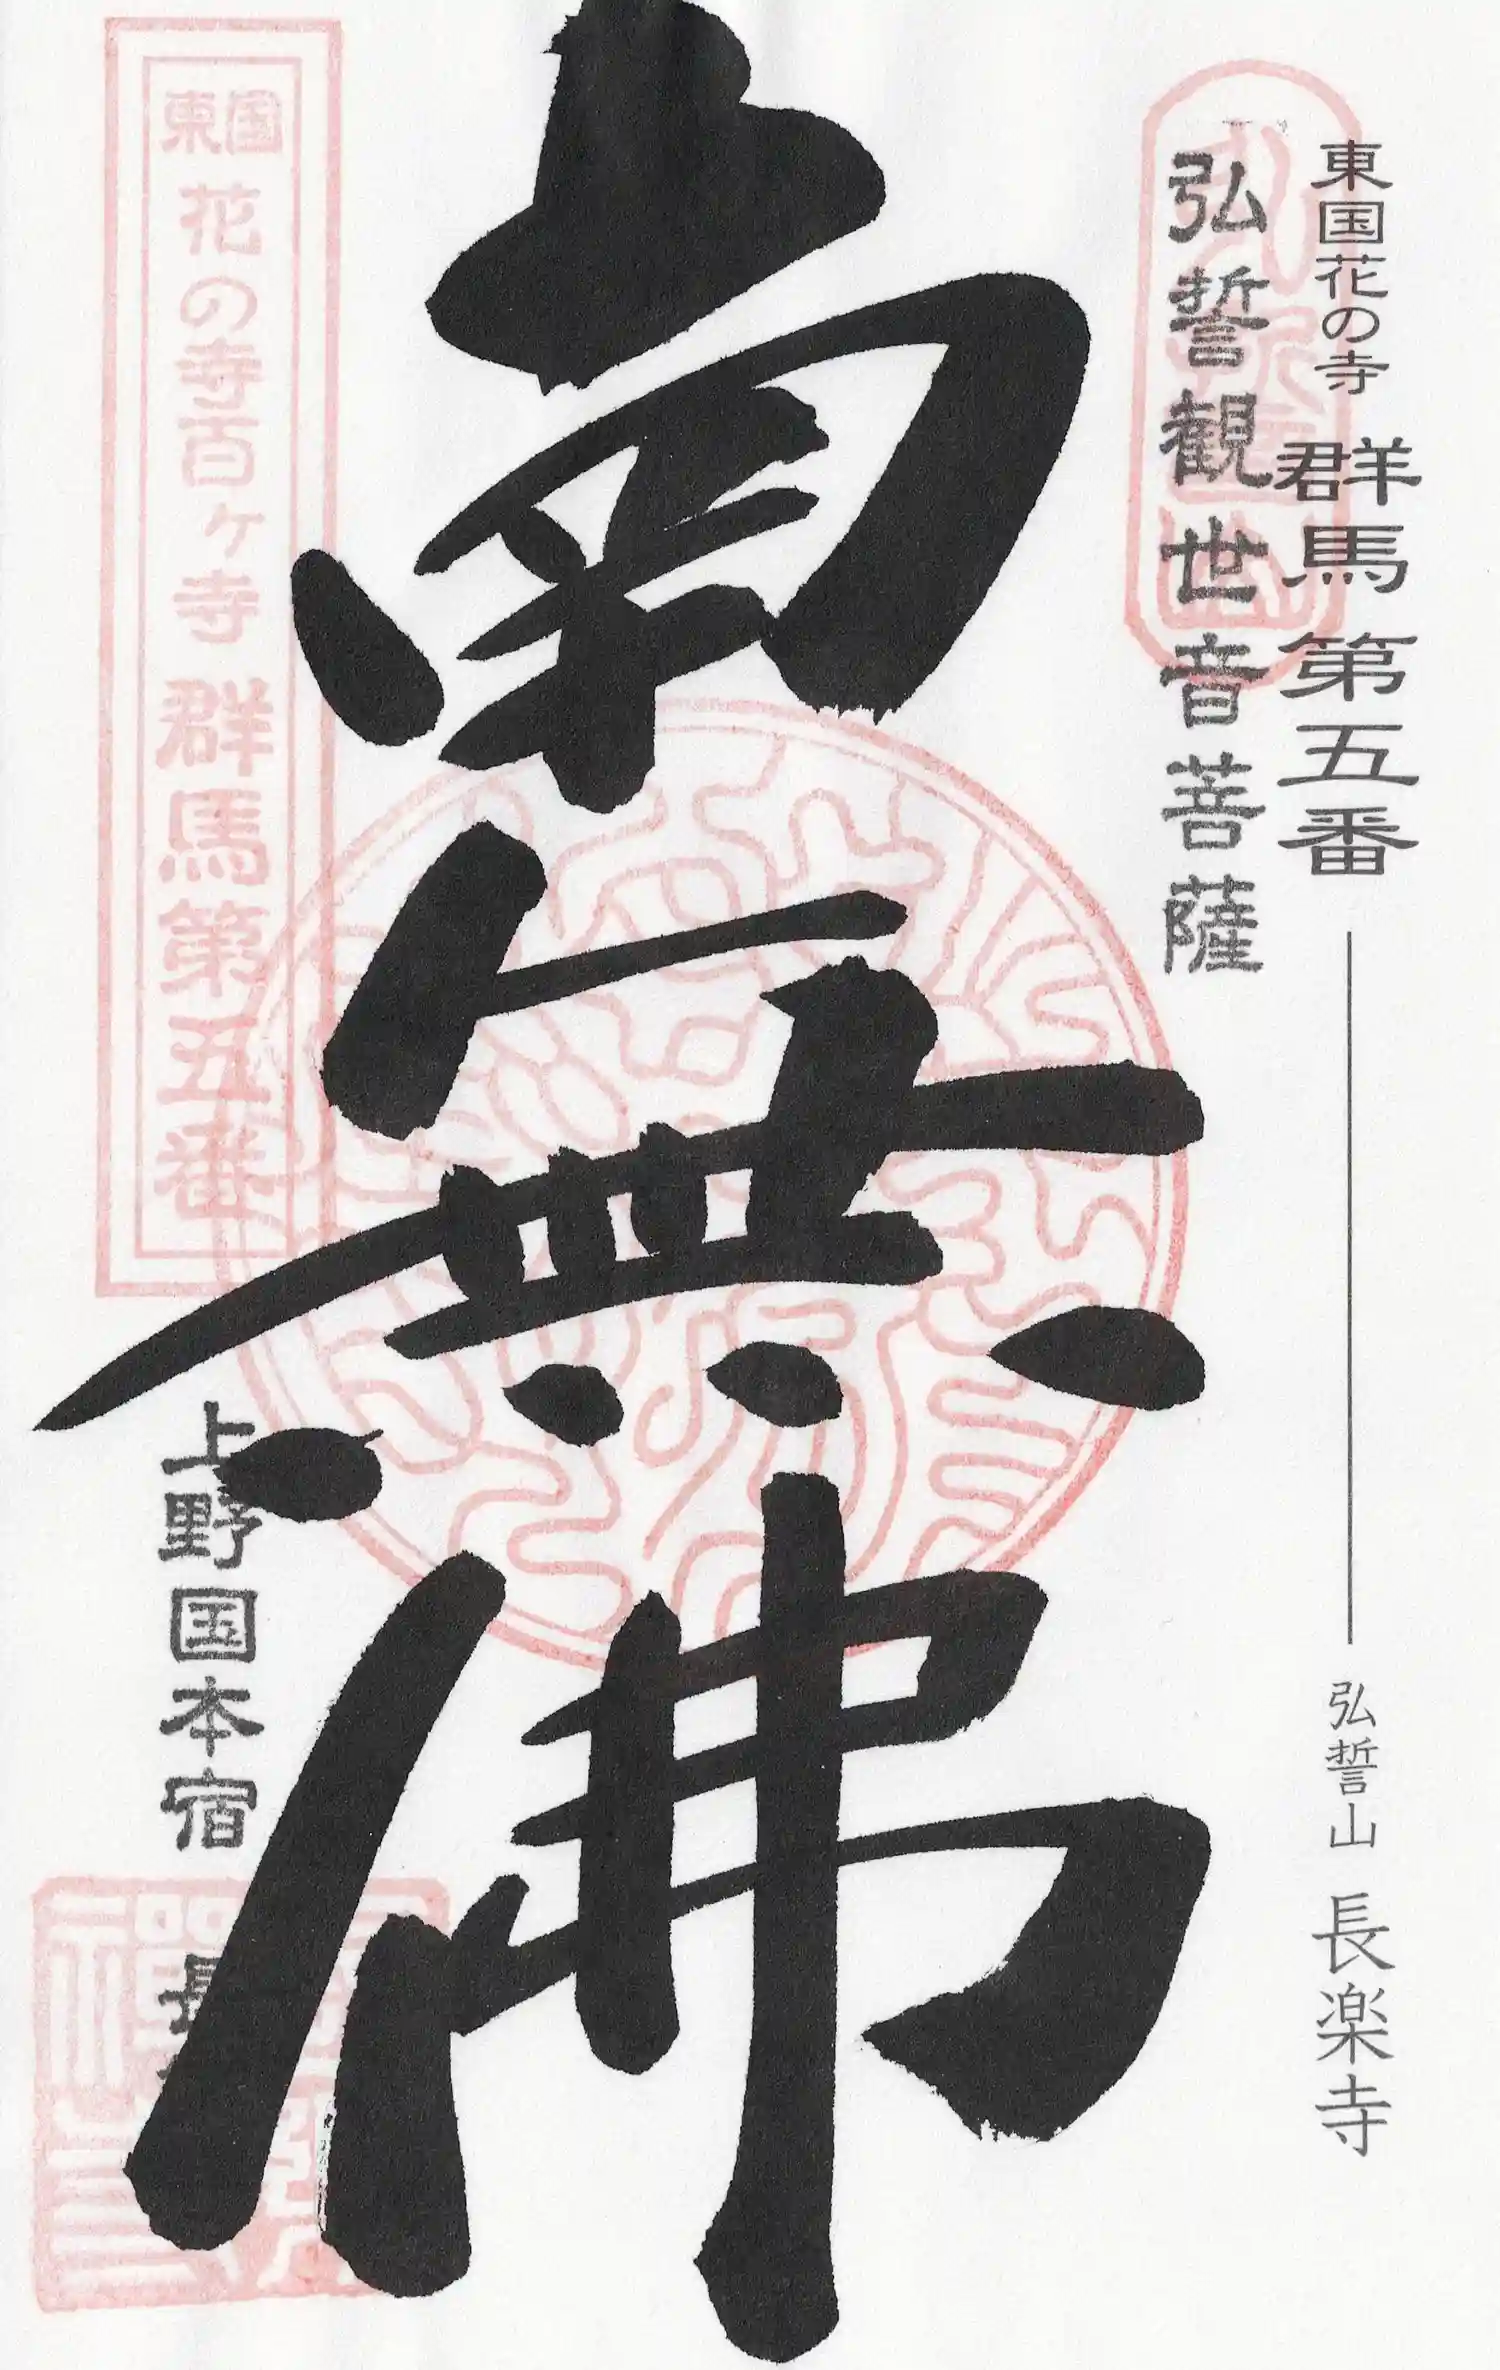 東国花の寺 群馬第五番 弘誓山 長楽寺
弘誓観世音菩薩
南無佛
東国 花の寺百ヶ寺 群馬第五番
上野国本宿 長